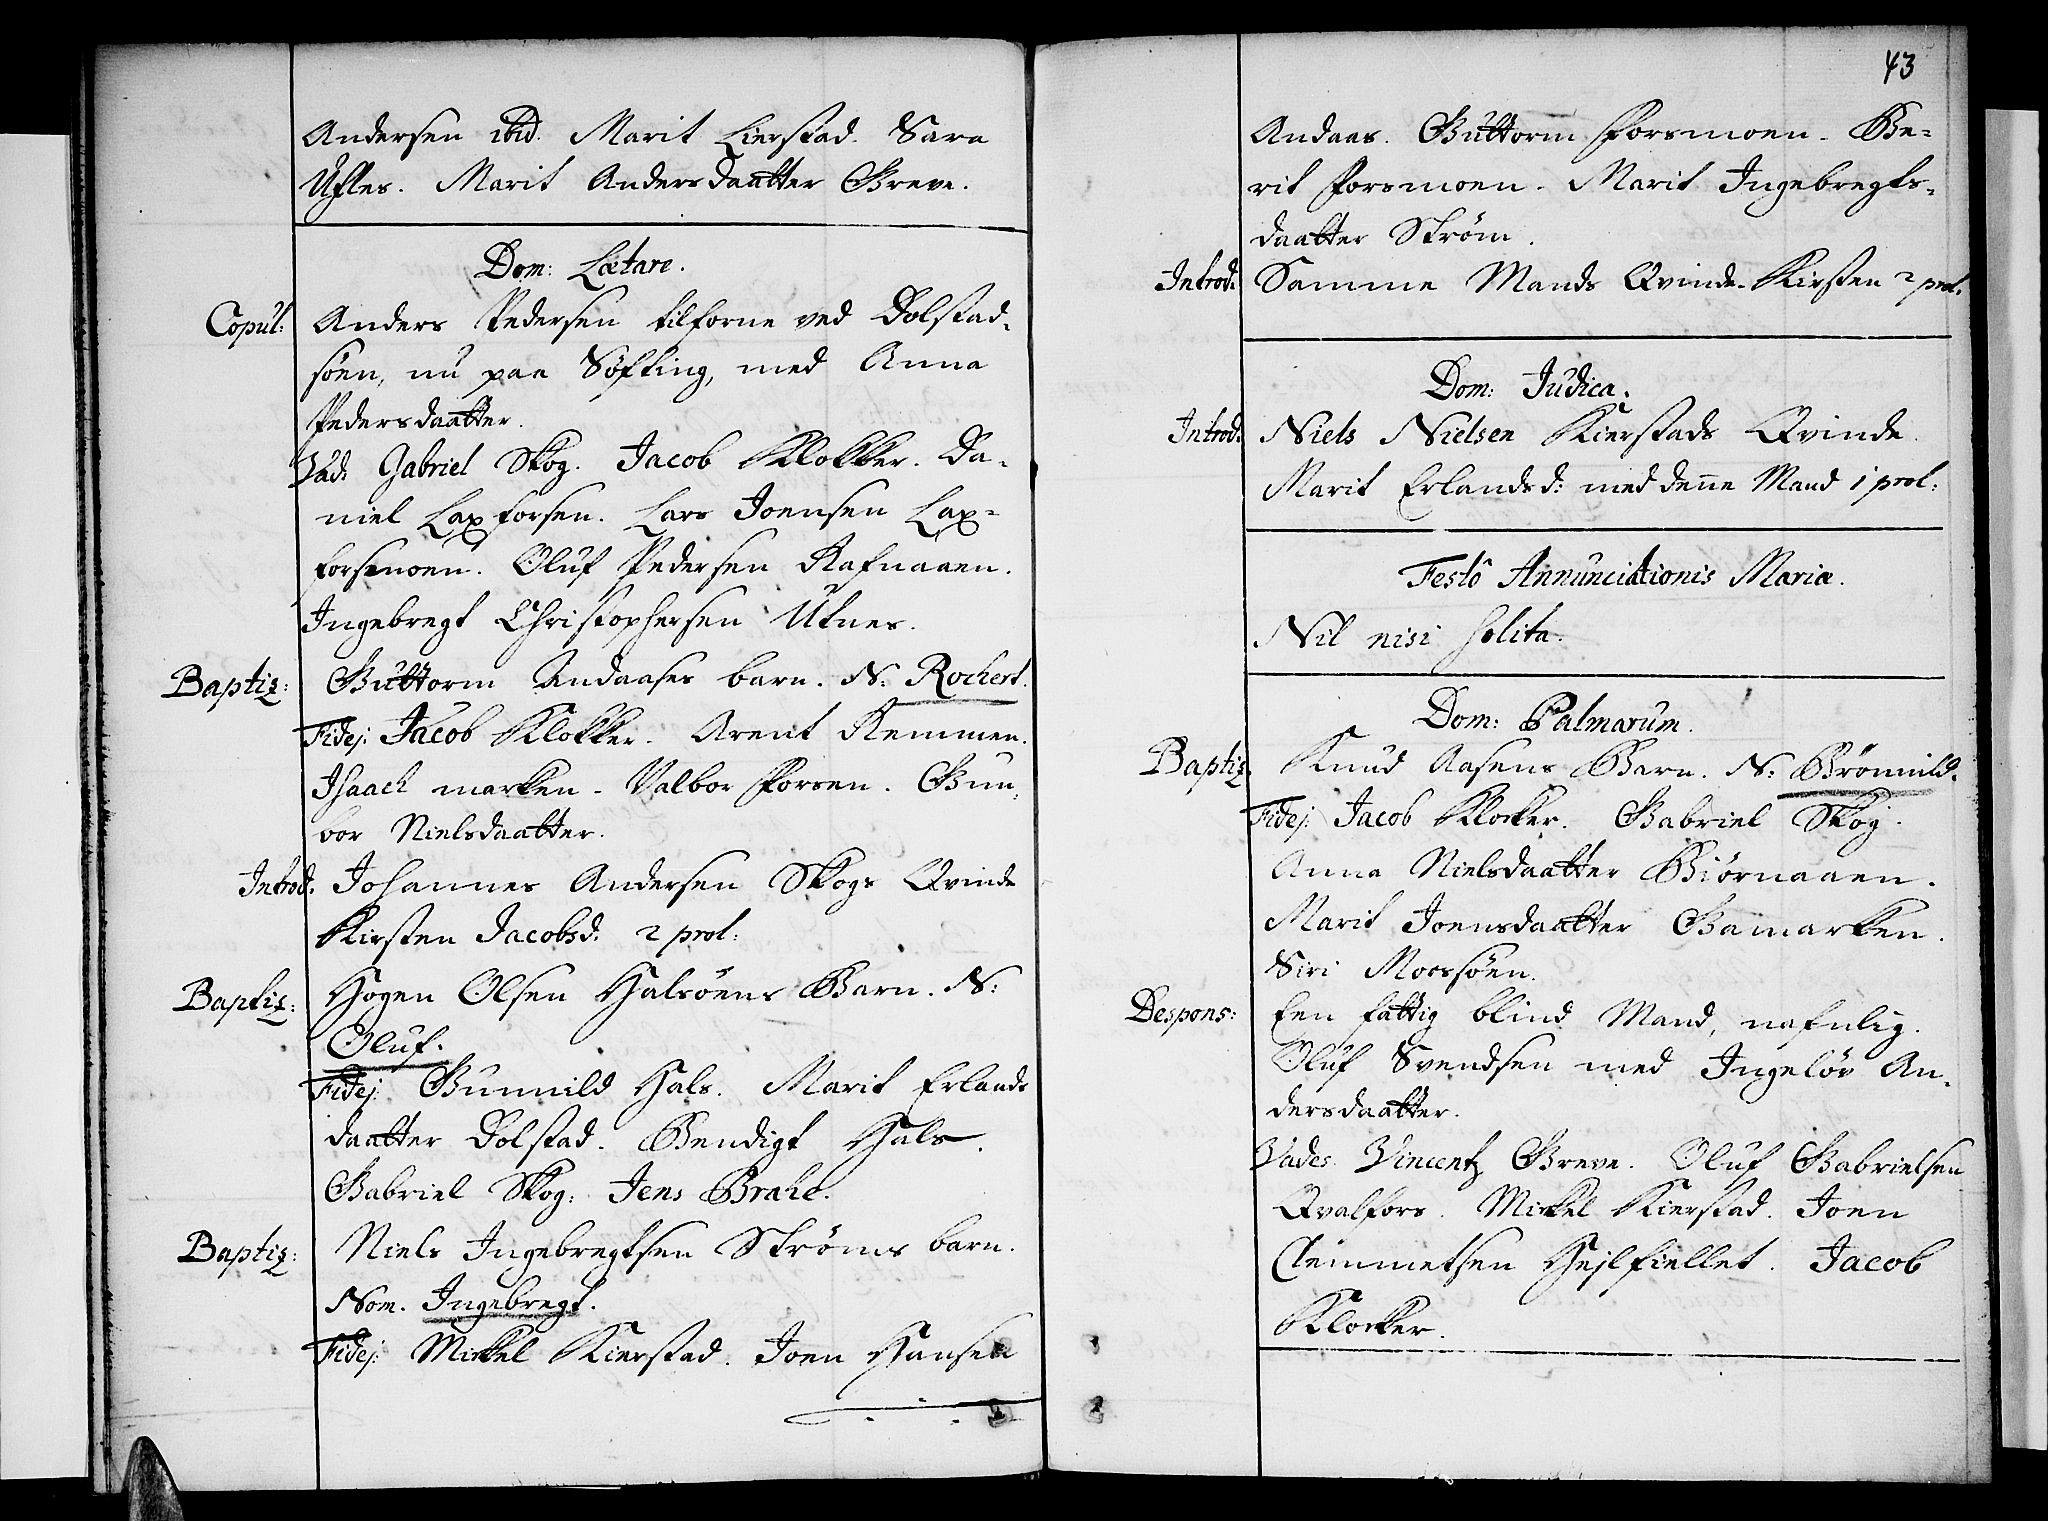 Andersen ibid. Marit Lierstad. Sara
Ufles. Marit Andersdaatter Greve.
Dom: Lætare.
Copul: Anders Pedersen tilforne ved Dolstad-
søen, nu paa Søfting, med Anna
Pedersdaatter.
Vad: Gabriel Skog. Jacob Klokker. Da-
niel Laxforsen. Lars Joensen Lax-
forsmoen. Oluf Pedersen Rafnaaen.
Ingebregt Christophersen Utnes.
Baptiz: Guttorm Andaases barn. N: Rochert.
Fidej: Jacob Klokker. Arent Remmen.
Isaach marken. Valbor Forsen. Gun-
bor Nielsdaatter.
Introd. Johannes Andersen Skogs Qvinde
Kirsten Jacobsd. 2 prol:
Baptiz: Hogen Olsen Halsøens Barn. N:
Oluf.
Fidej: Gunnild Hals. Marit Erlands
daatter Dolstad. Bendigt Hals.
Gabriel Skog: Jens Brahe.
Baptiz: Niels Ingebregtsen Strøms barn.
Nom. Ingebregt.
Fidej: Mickel Kierstad. Joen Hansen
43
Andaas. Guttorm Forsmoen. Be-
rit Forsmoen. Marit Ingebregts-
daatter Strøm.
Introd: Samme Mands Qvinde. Kirsten 2 prol.
Dom: Judica.
Introd: Niels Nielsen Kierstads Qvinde
Marit Erlandsd: med denne Mand 1 prol:
Festô Annunciationis Mariæ.
Nil nisi solita.
Dom: Palmarum.
Baptiz. Knud Aasens Barn. N: Grønnild.
Fidej: Jacob Klocker. Gabriel Skog.
Anna Nielsdaatter Biørnaaen.
Marit Joensdaatter Gamarken.
Siri Mocssøen.
Despons: Een fattig blind Mand, nafnlig.
Oluf Svendsen med Ingelør An-
dersdaatter.
Vades. Vincentz Greve. Oluf Gabrielsen
Qvalfors. Mickel Kierstad. Joen
Clemmetsen Hejlfiellet. Jacob
Klocker.